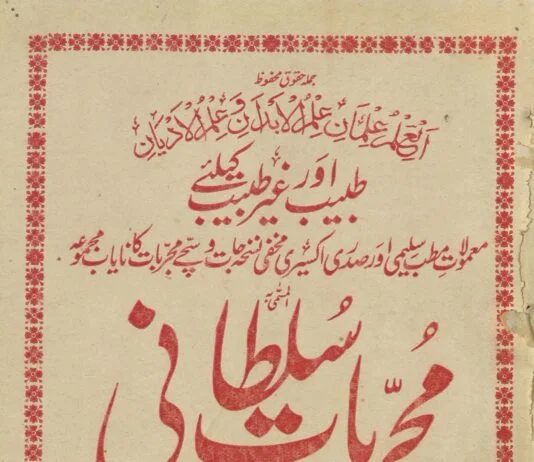 جملہ حقوق محفوظ
اَلْعِلْمُ عِلْمَانِ عِلْمُ الْاَبْدَانِ وَ عِلْمُ الْاَدْیَانِ
طبیب اور غیر طبیب کیلئے
معمولاتِ مطب سلیمی اور صدری اکسیری مخفی نسخہ جات و سچے مجربات کا نایاب مجموعہ
المسمّٰی بہ
مُجرّبات سُلطانی